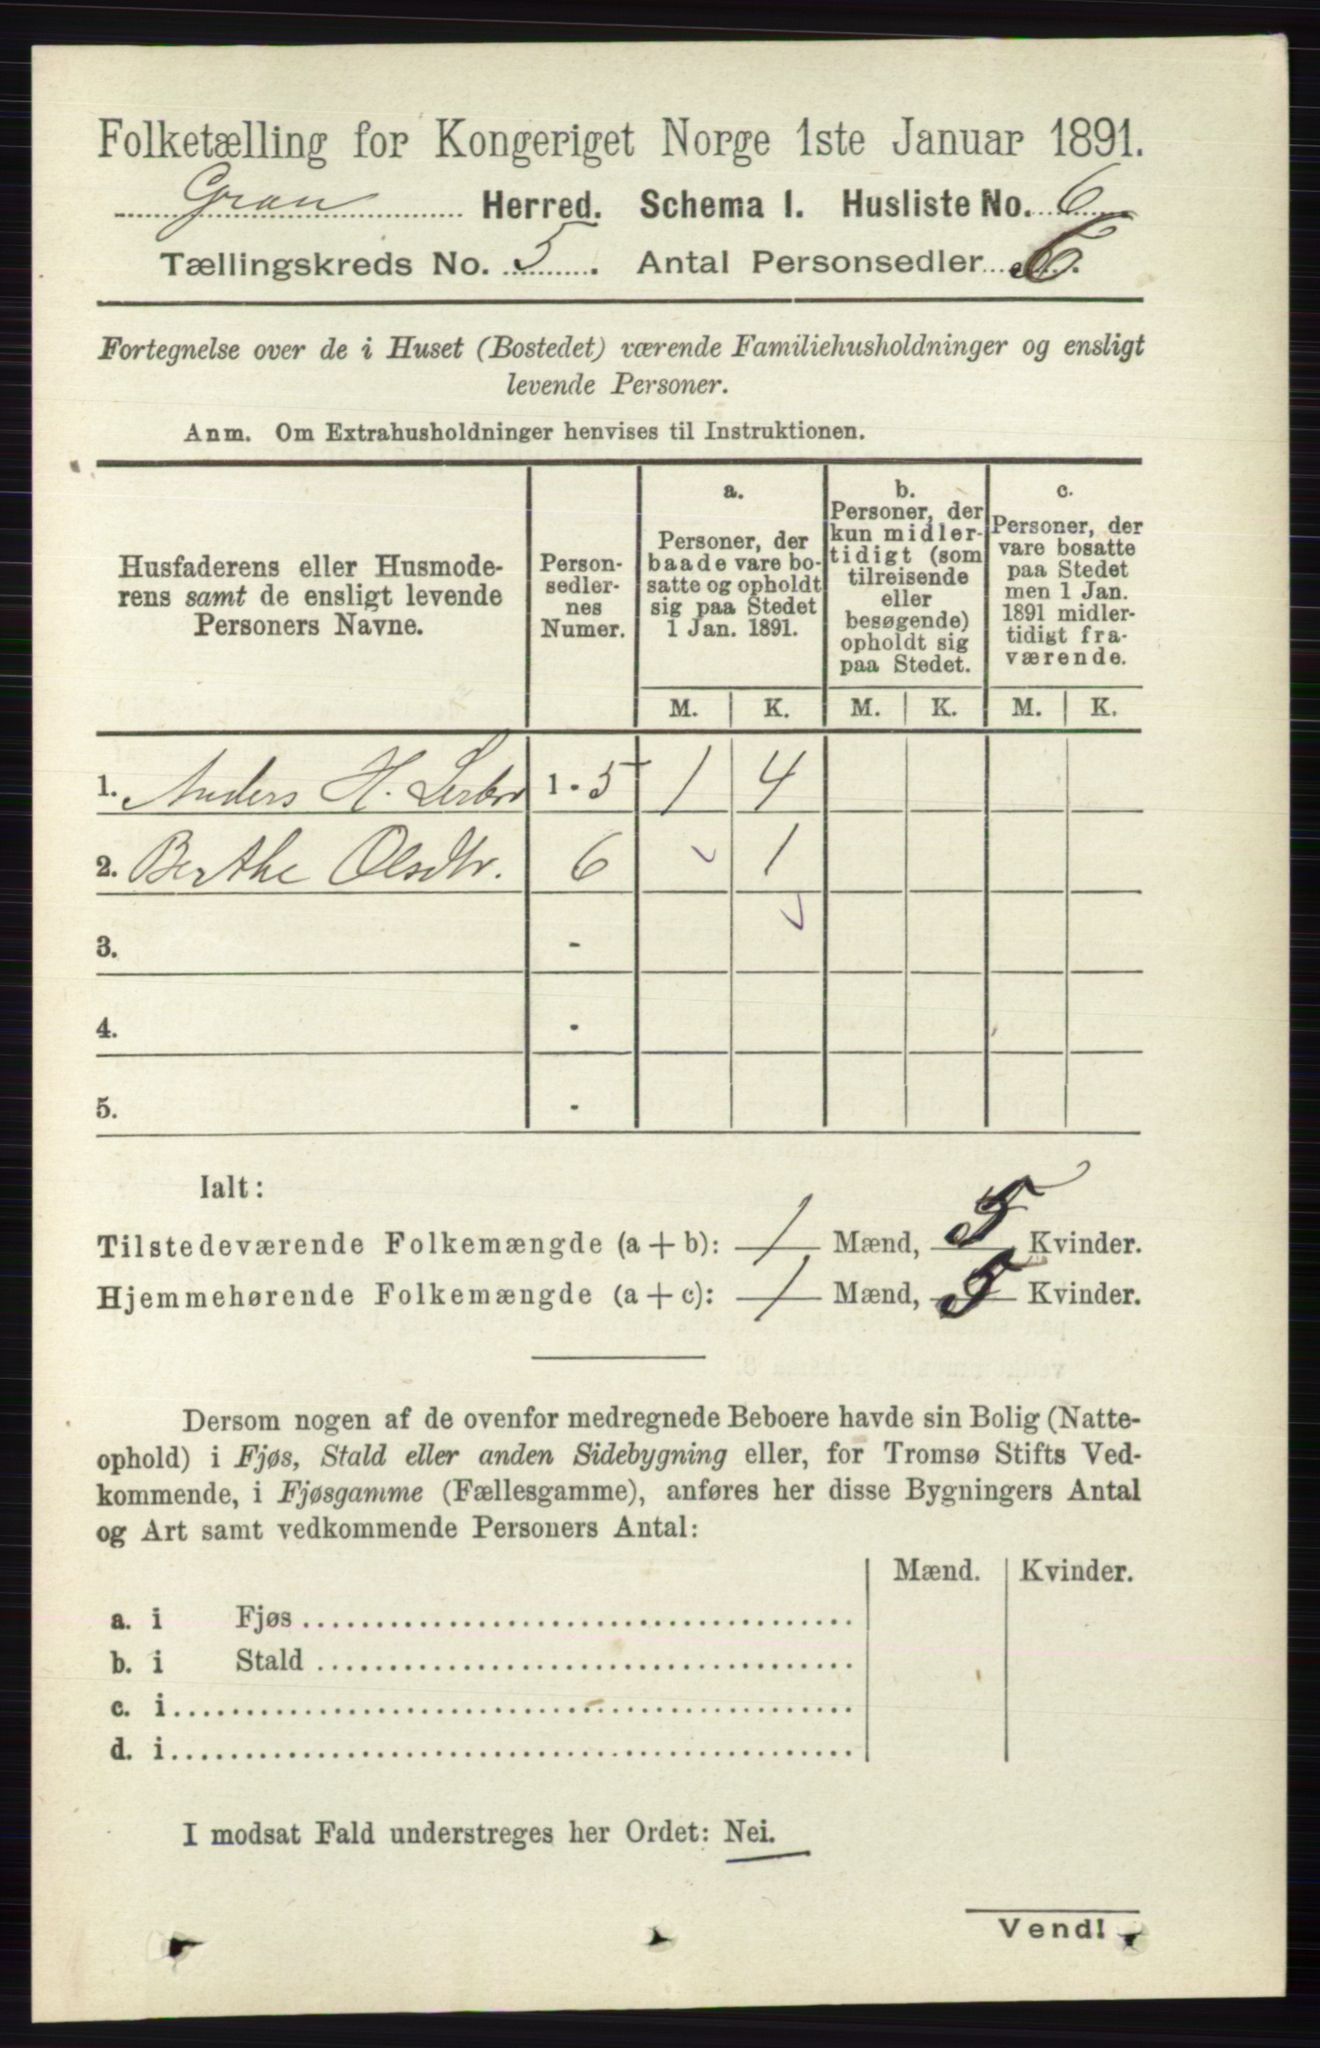 Folketælling for Kongeriget Norge 1ste Januar 1891.
Gran Herred. Schema I. Husliste No. 6
Tællingskreds No. 5. Antal Personsedler 6.
Fortegnelse over de i Huset (Bostedet) værende Familiehusholdninger og ensligt
levende Personer.
Anm. Om Extrahusholdninger henvises til Instruktionen.
Husfaderens eller Husmode-
rens samt de ensligt levende
Personers Navne.
Person-
sedler-
nes
Numer.
a.
Personer, der
baade vare bo-
satte og opholdt
sig paa Stedet
1 Jan. 1891.
b.
Personer, der
kun midler-
tidigt (som
tilreisende
eller
besøgende)
opholdt sig
paa Stedet.
c.
Personer, der
vare bosatte
paa Stedet
men 1 Jan.
1891 midler-
tidigt fra-
værende.
M. K. M. K. M. K.
1. Anders H. 1 - 5 1 4
2. Berthe Olsdtr. 6 1
3. -
4. -
5. -
Ialt:
Tilstedeværende Folkemængde (a + b): 1 Mænd, 5 Kvinder.
Hjemmehørende Folkemængde (a + c): 1 Mænd, 5 Kvinder.
Dersom nogen af de ovenfor medregnede Beboere havde sin Bolig (Natte-
ophold) i Fjøs, Stald eller anden Sidebygning eller, for Tromsø Stifts Ved-
kommende, i Fjøsgamme (Fællesgamme), anføres her disse Bygningers Antal
og Art samt vedkommende Personers Antal:
Mænd. Kvinder.
a. i Fjøs
b. i Stald
c. i
d. i
I modsat Fald understreges her Ordet: Nei.
Vend!